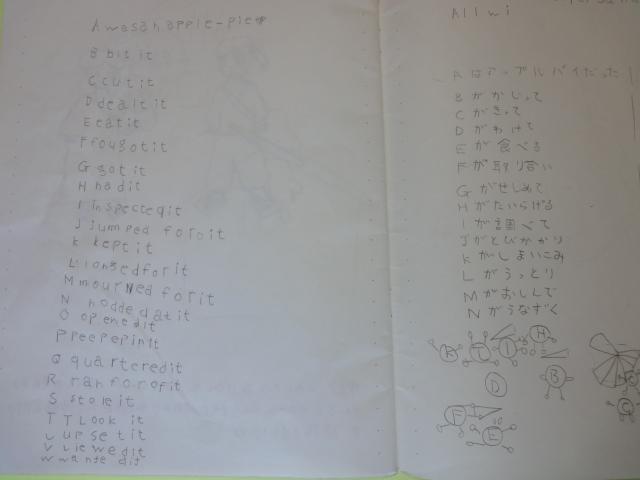 A wasanapple-pie
B bit it
C cut it
D dealt it
E eat it
F fougot it
G got it
H had it
I inspected it
J jumped foroit
K kept it
L longed for it
M mourned for it
N nodded at it
O opened it
P peepepin it
Q quartered it
R ran forofit
S stole it
T T Look it
U upset it
V viewed it
W wante dit
All wi
A はアップルパイだった
B がかじって
C がきって
D がわけて
E が食べる
F が取り合い
G がせしめて
H がたいらげる
I が調べて
J がとびかかり
K がしまいこみ
L がうっとり
M がおしんで
N がうなずく
I
H
B
D
F
E
C